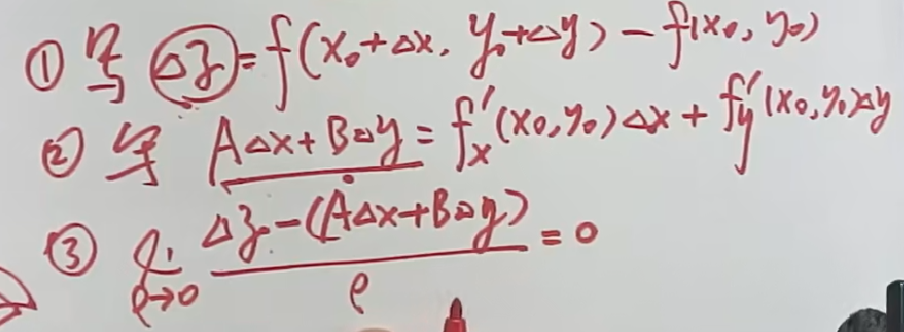 ① 写 Δz = f(x₀+Δx, y₀+Δy) − f(x₀, y₀)
② 写 AΔx+BΔy = f'ₓ(x₀,y₀)Δx + f'ᵧ(x₀,y₀)Δy
③ lim_{ρ→0} (Δz−(AΔx+BΔy))/ρ = 0